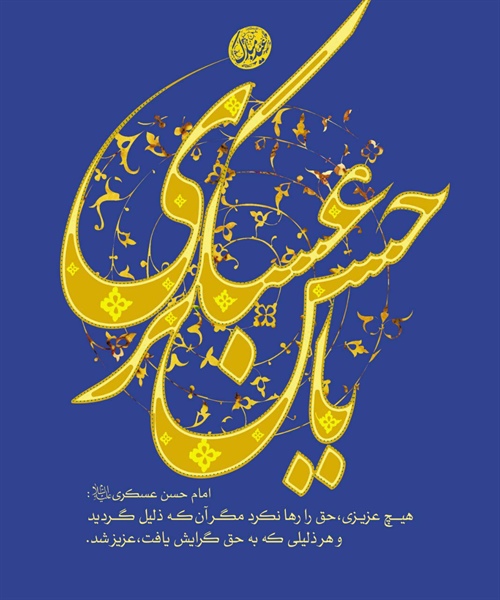 یا حسن عسکری
امام حسن عسکری علیه‌السلام:
هیچ عزیزی، حق را رها نکرد مگر آن که ذلیل گردید
و هر ذلیلی که به حق گرایش یافت، عزیز شد.